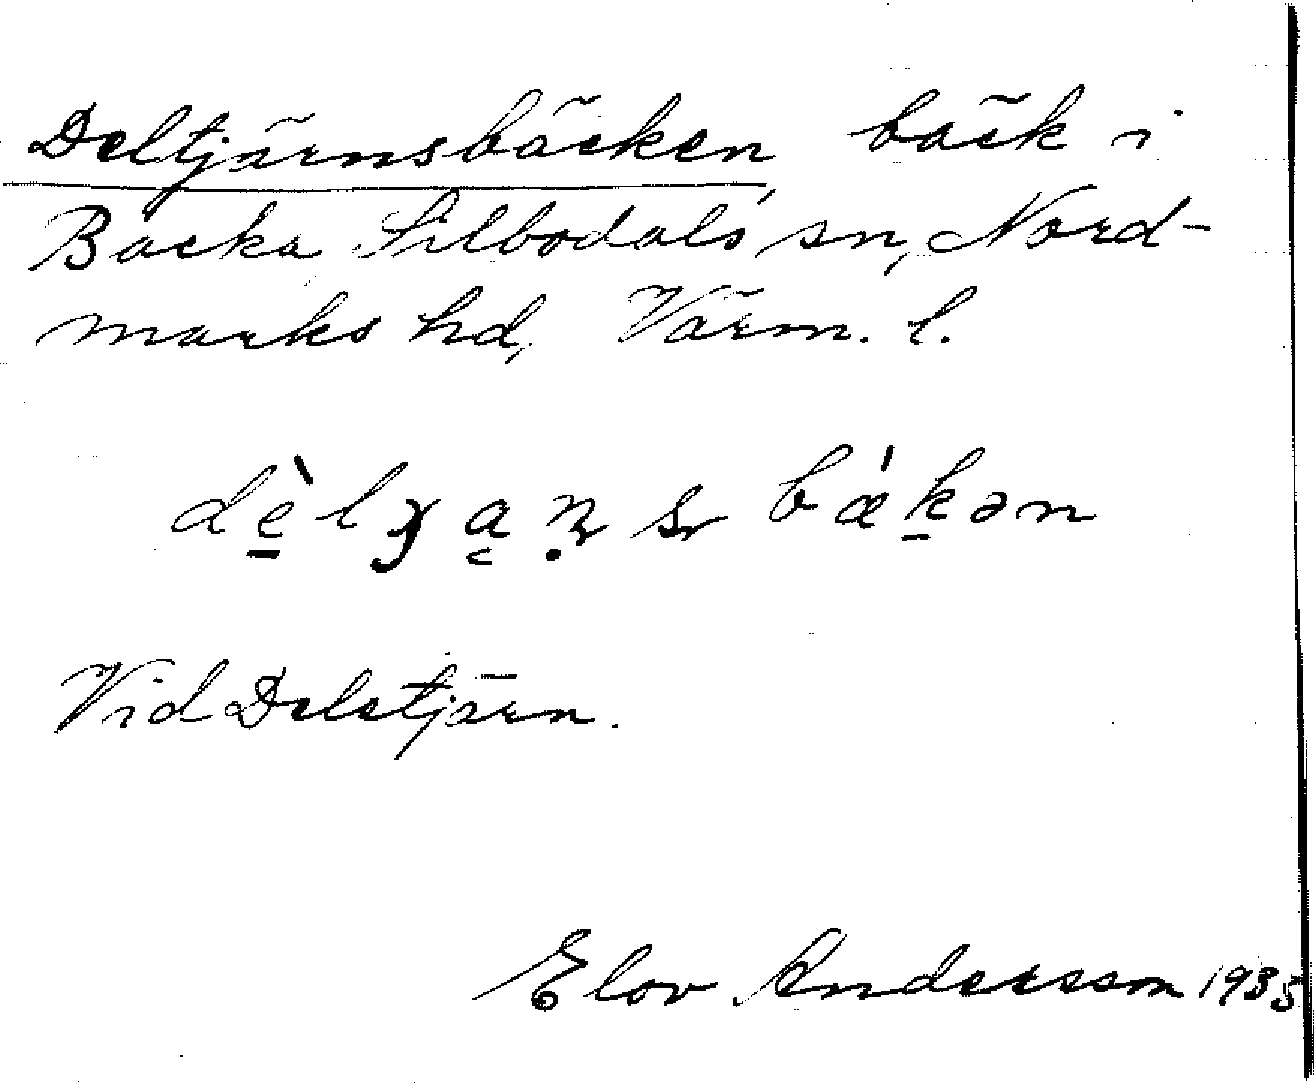 Deltjärnsbäcken bäck i
Backa Silbodals sn, Nord-
marks hd, Värm. l.
bǽkən
Vid Deletjärn.
Elov Andersson 1935